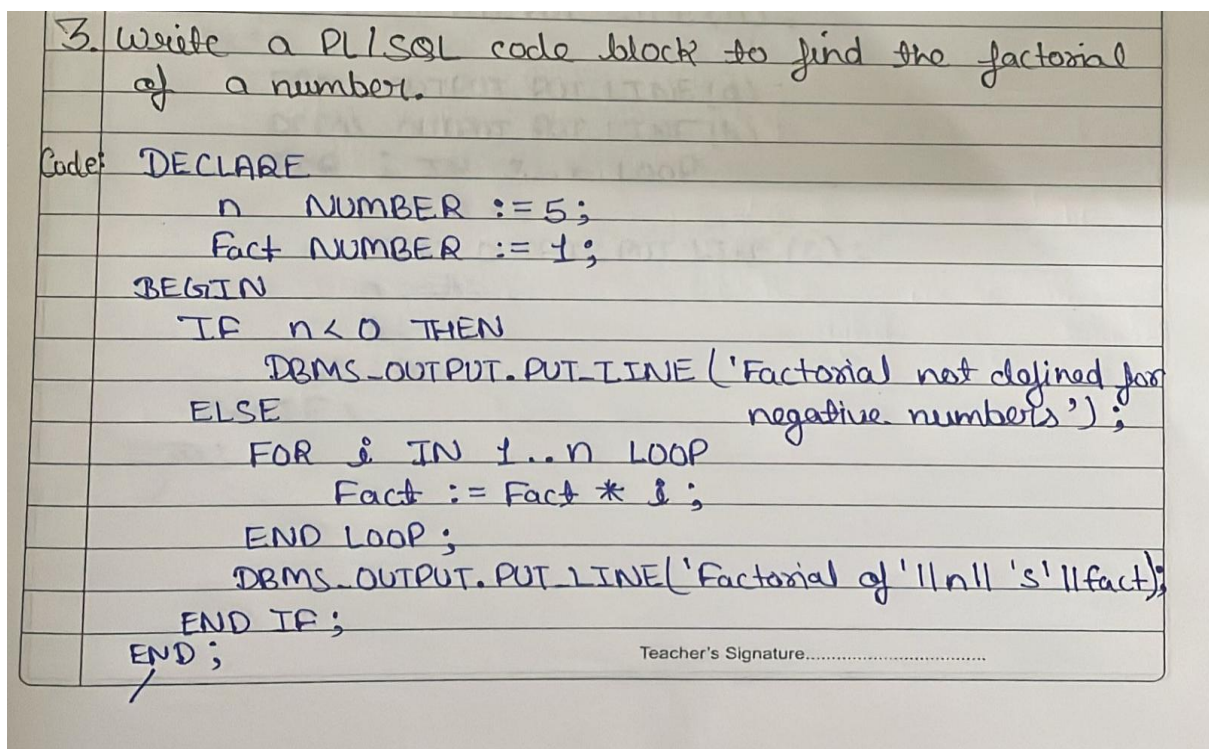 3. Write a PL/SQL code block to find the factorial
of a number.
Code: DECLARE
n NUMBER := 5;
Fact NUMBER := 1;
BEGIN
IF n < 0 THEN
DBMS_OUTPUT.PUT_LINE ('Factorial not defined for
negative numbers');
ELSE
FOR i IN 1..n LOOP
Fact := Fact * i;
END LOOP;
DBMS_OUTPUT.PUT_LINE('Factorial of '||n|| 's' ||fact);
END IF;
END;
/
Teacher's Signature....................................